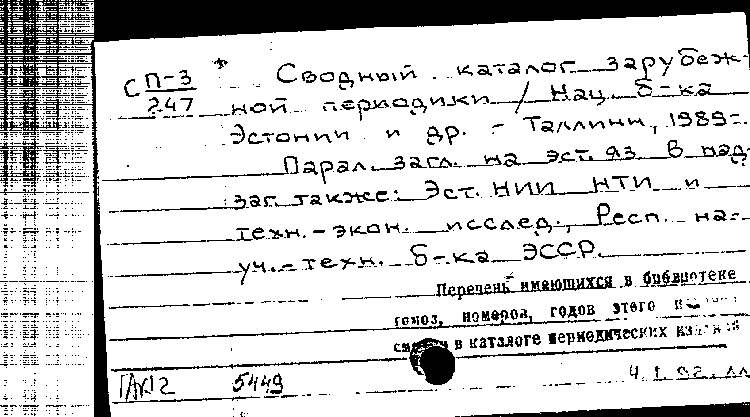 С П-3 Сводный каталог зарубеж-
247 ной периодики / Нац. б-ка
Эстонии и др. - Таллинн, 1989-.
Парал. загл. на эст. яз. В над-
заг. также: Эст. НИИ НТИ и
техн.-экон. исслед., Респ. на-
уч.-техн. б-ка ЭССР.
Перечень имеющихся в библиотеке
томов, номеров, годов этого
в каталоге периодических изданий
5449